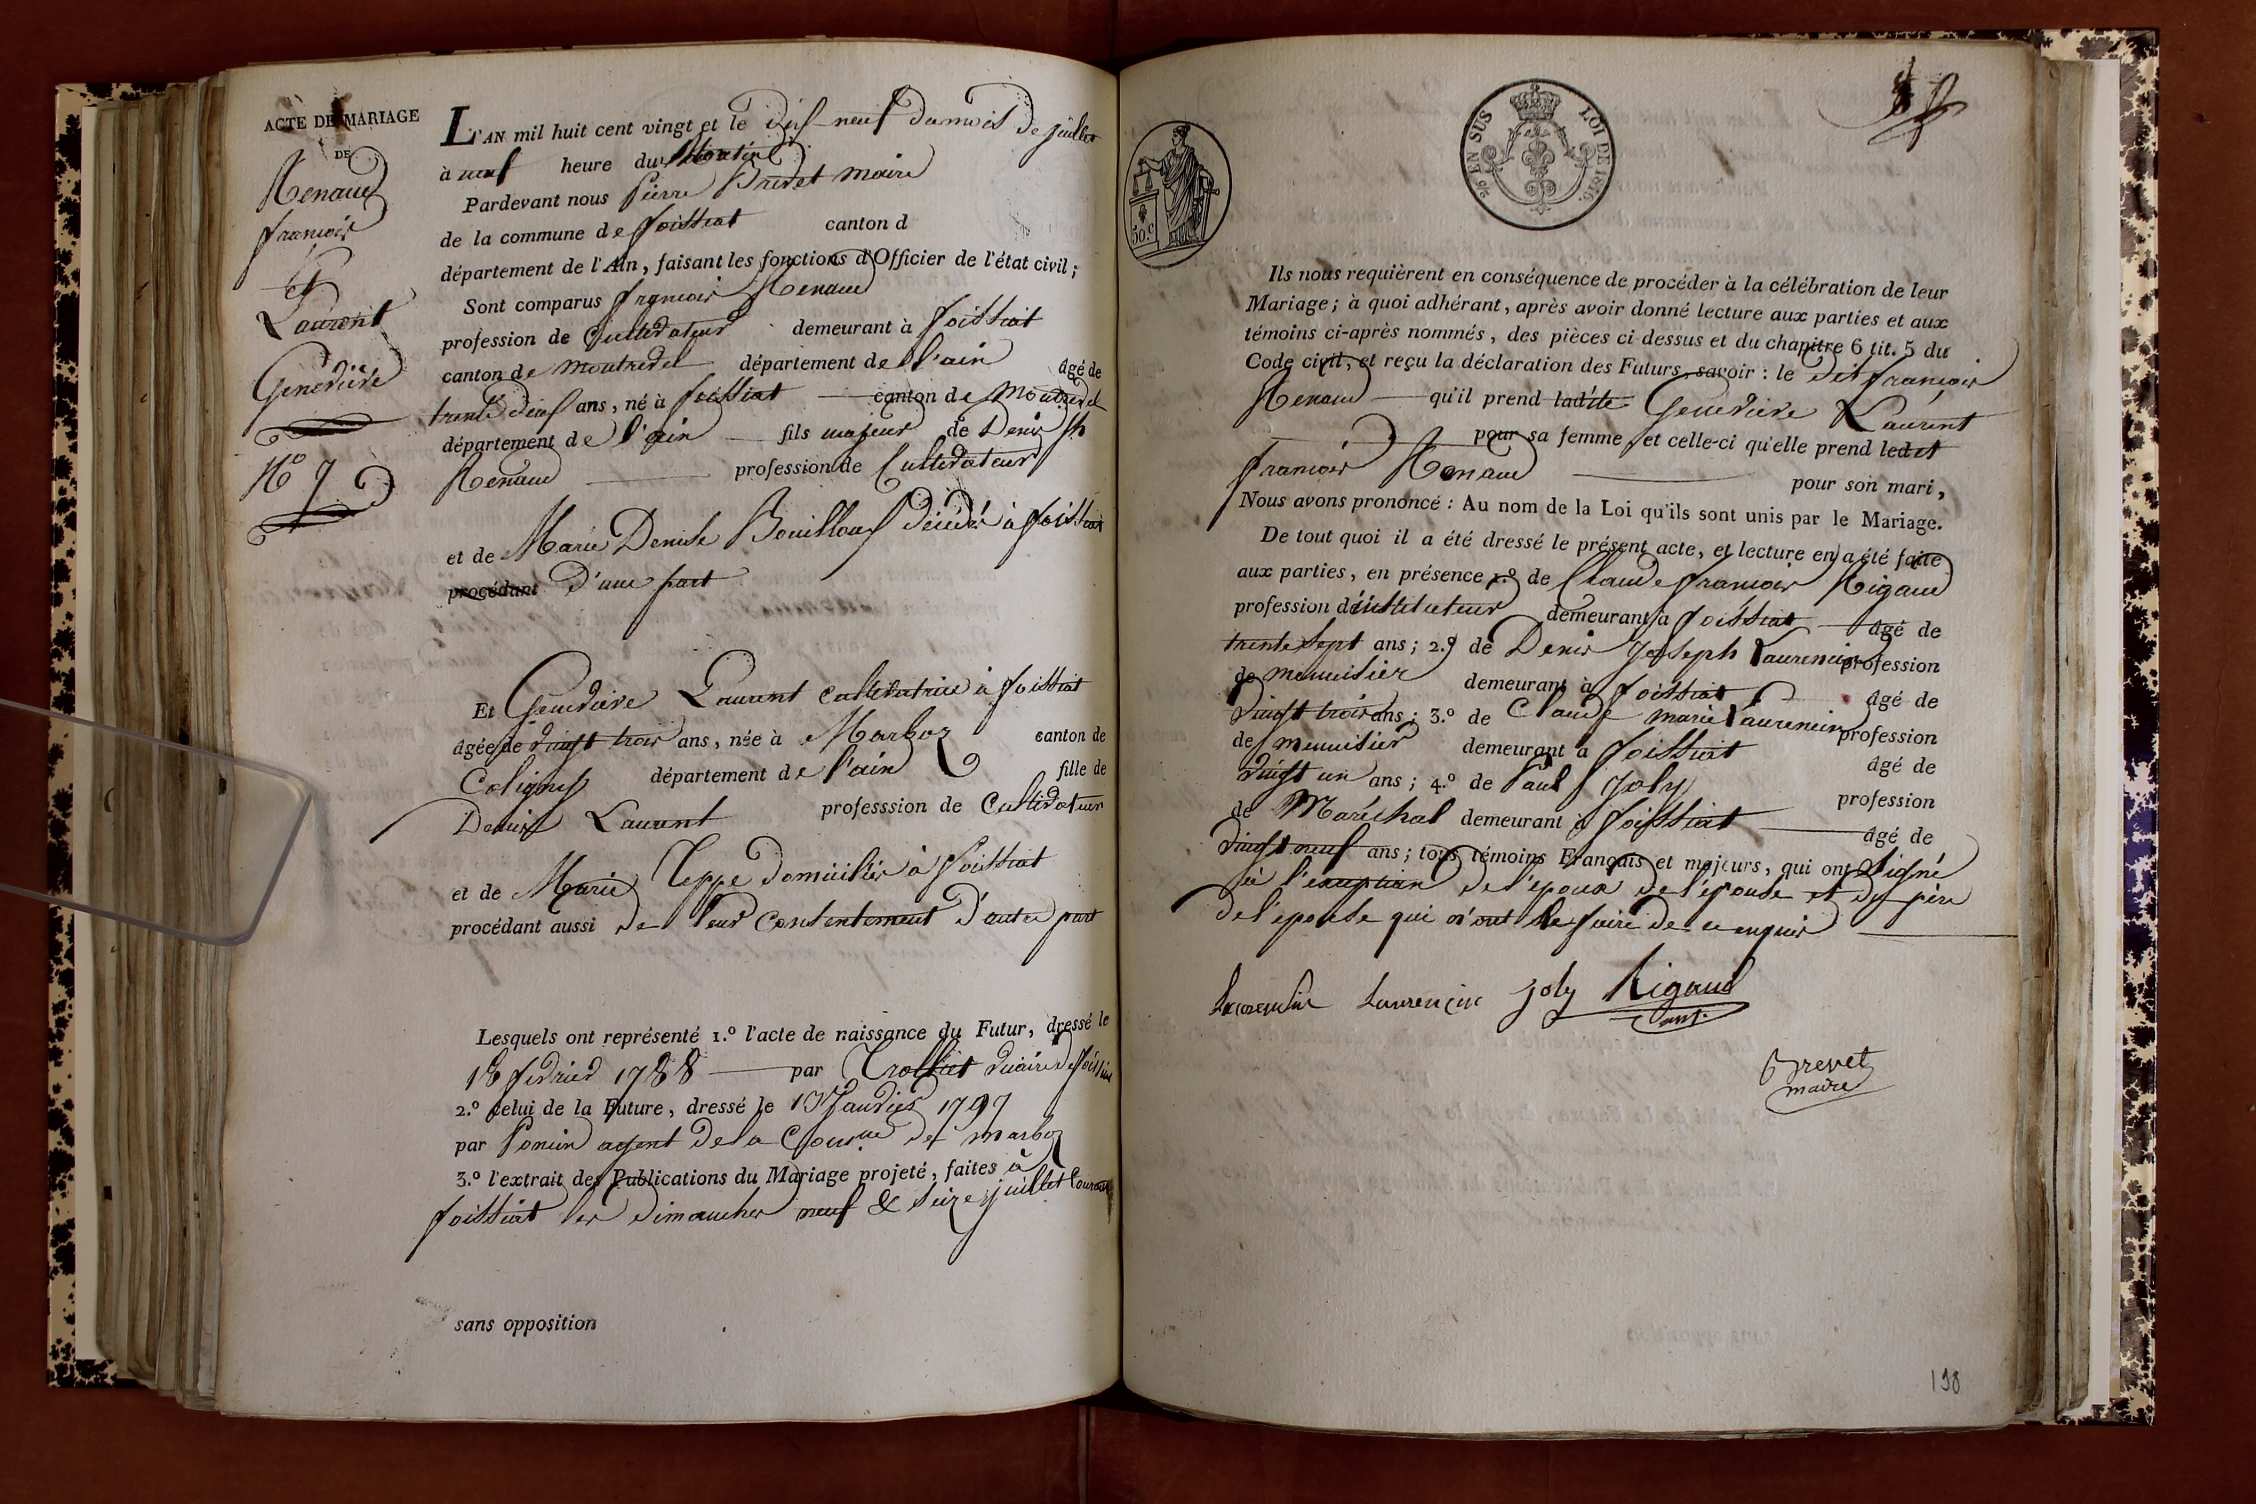 ACTE DE MARIAGE
DE
Renaud
francois
Et
Laurent
Genevieve
N° 7
L'AN mil huit cent vingt et le dix-neuf du mois de juillet
à neuf heure du Matin
Pardevant nous Pierre Brevet maire
de la commune de foissiat canton d
département de l'Ain, faisant les fonctions d'Officier de l'état civil;
Sont comparus françois Renaud
profession de Cultivateur demeurant à foissiat
canton de montrevel département de l'ain âgé de
trente deux ans, né à foissiat canton de Montrevel
département de l'ain fils majeur de Denis Jh
Renaud profession de Cultivateur
et de Marie Denise Bouilloux décédés à foissiat
procédant d'une part
Et Genevieve Laurent cultivatrice à foissiat
âgée de vingt trois ans, née à Marboz canton de
Coligny département de l'ain fille de
Denis Laurent professsion de Cultivateur
et de Marie Teppe domiciliés à foissiat
procédant aussi de leur consentement d'autre part
Lesquels ont représenté 1.º l'acte de naissance du Futur, dressé le
18 fevrier 1788 par Trolliet vicaire de foissiat
2.º celui de la Future, dressé le Janvier 1797
par Poncin agent de la Cou.ne de marboz
3.º l'extrait des Publications du Mariage projeté, faites à
foissiat les dimanches neuf & seize juillet Courant
sans opposition
30.c
5/c EN SUS
LOI DE 1816.
Ils nous requièrent en conséquence de procéder à la célébration de leur
Mariage; à quoi adhérant, après avoir donné lecture aux parties et aux
témoins ci-après nommés, des pièces ci dessus et du chapitre 6 tit. 5 du
Code civil, et reçu la déclaration des Futurs, savoir : le dit françois
Renaud qu'il prend ladite Genevieve Laurent
pour sa femme, et celle-ci qu'elle prend ledit
francois Renaud pour son mari,
Nous avons prononcé : Au nom de la Loi qu'ils sont unis par le Mariage.
De tout quoi il a été dressé le présent acte, et lecture en a été faite
aux parties, en présence 1.º de Claude francois Rigaud
profession d'instituteur demeurant à foissiat âgé de
trente sept ans; 2.º de Denis Joseph Laurencin profession
de menuisier demeurant à foissiat âgé de
vingt trois ans; 3.º de Claude marie Laurencin profession
de menuisier demeurant à foissiat âgé de
vingt un ans; 4.º de Paul Joly profession
de Maréchal demeurant à foissiat âgé de
vingt neuf ans; tous témoins Français et majeurs, qui ont signé
à l'exception de l'epoux de l'épouse et du père
de l'epouse qui n'ont le faire de ce enquis
Laurencin Laurençin joly Rigaud
Brevet
maire
198